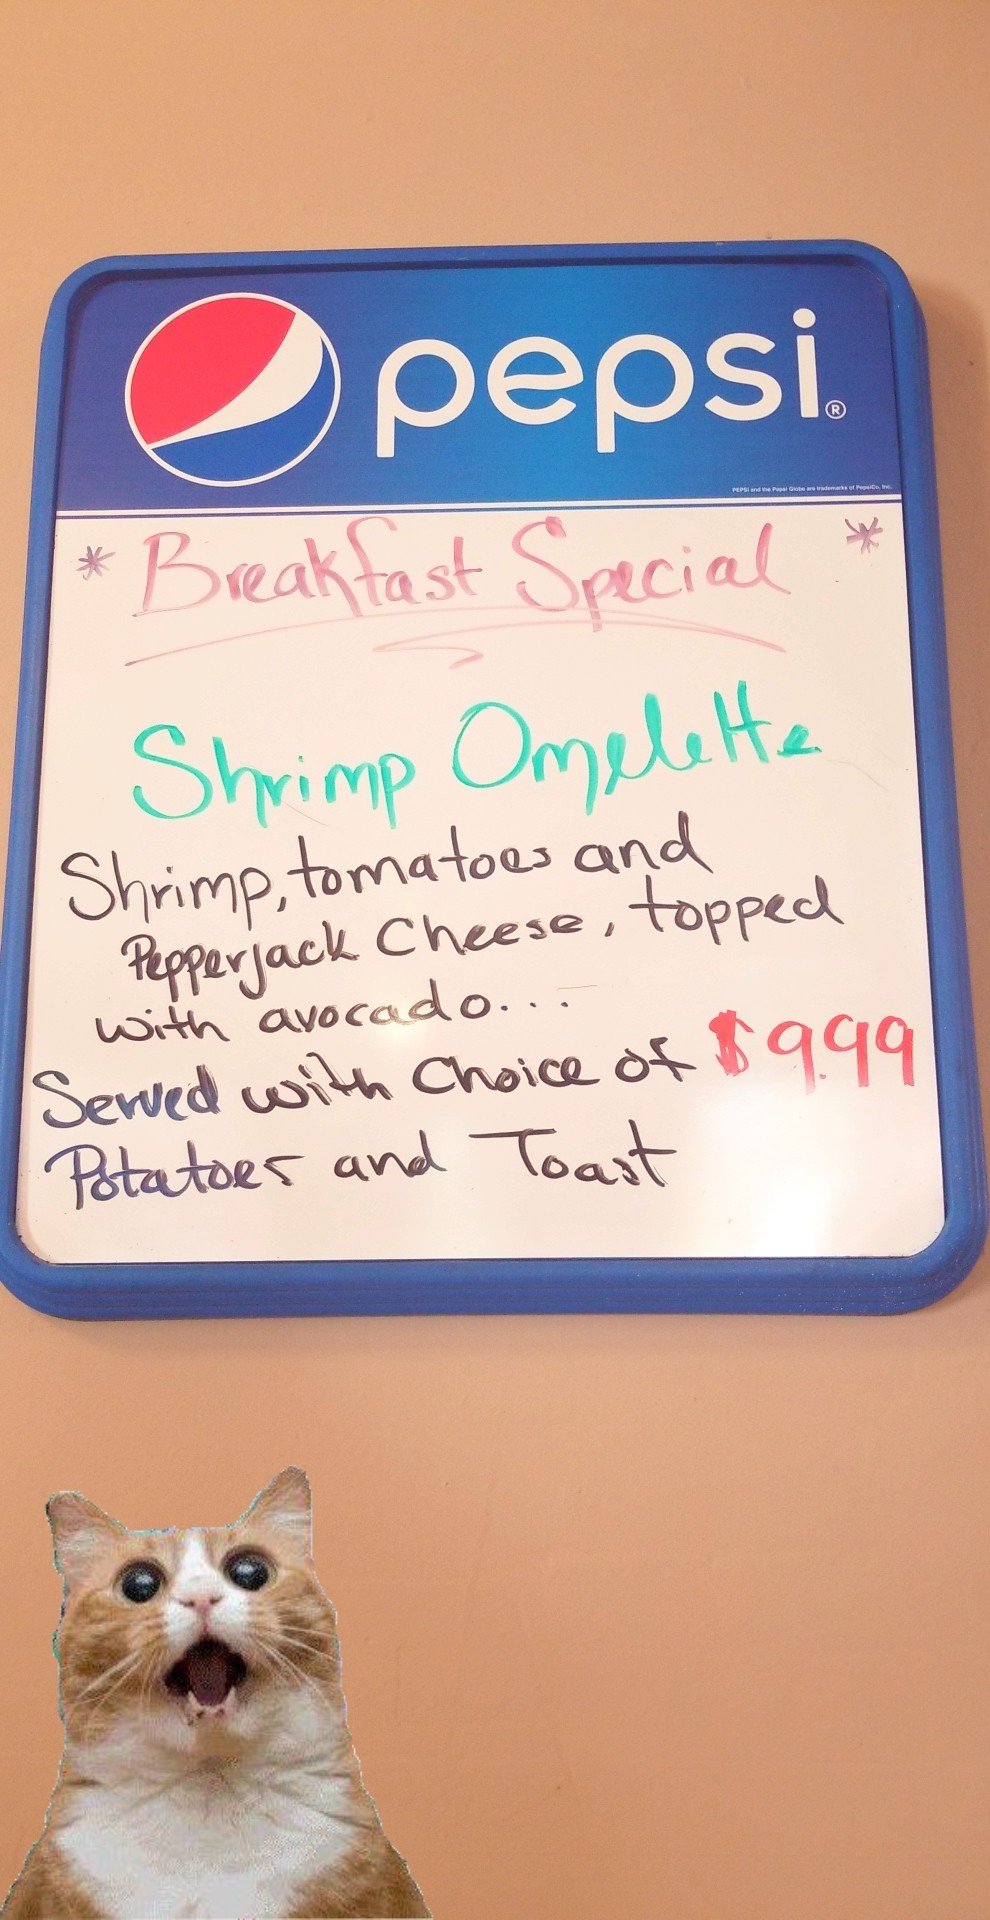 pepsi®
PEPSI and the Pepsi Globe are trademarks of PepsiCo, Inc.
* Breakfast Special *
Shrimp Omelette
Shrimp, tomatoes and
Pepperjack Cheese, topped
with avocado...
Served with Choice of $9.99
Potatoes and Toast